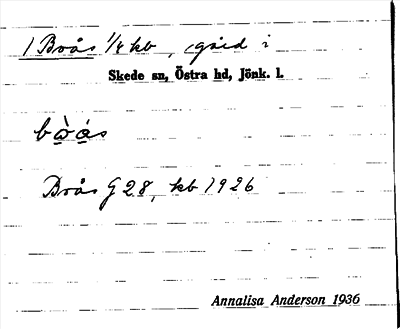 1 Broås 1/4 kb, gård i
Skede sn, Östra hd, Jönk. l.
bòå̀s
Broås G 28, kb 1926
Annalisa Anderson 1936